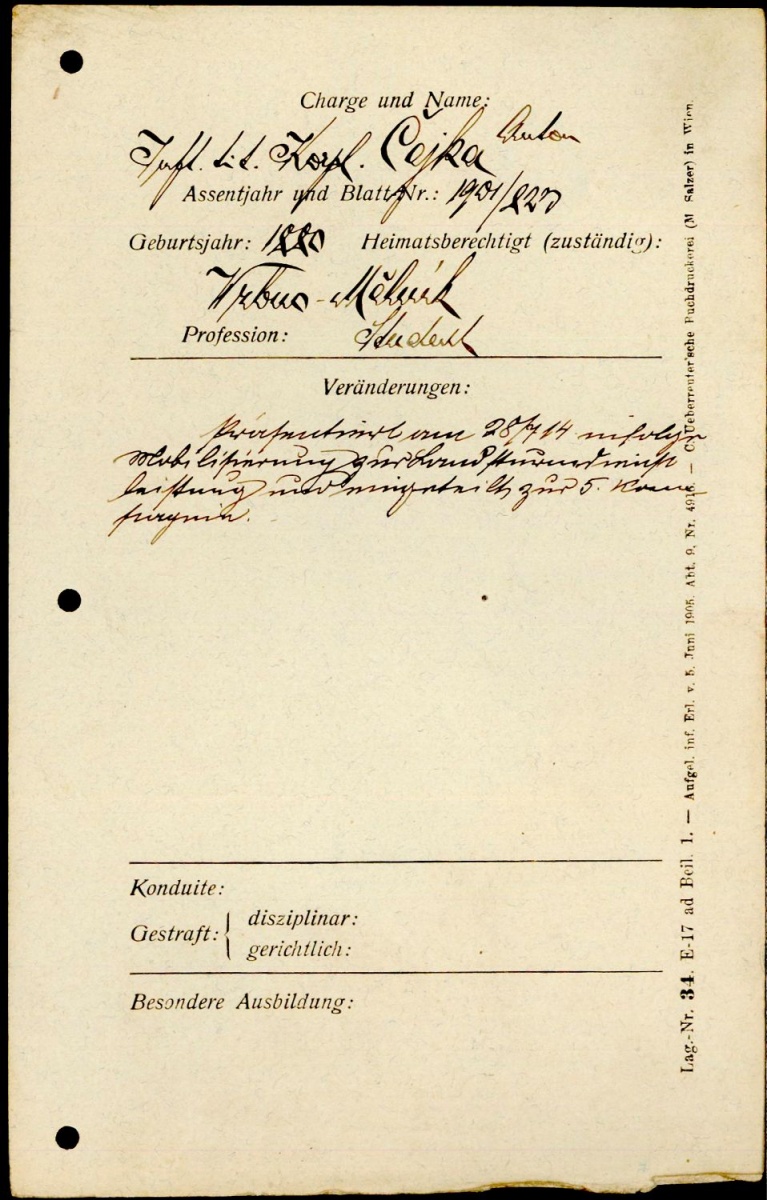 Charge und Name:
Inft. tit. Korpl. Čejka Anton
Assentjahr und Blatt-Nr.: 1901/
Geburtsjahr: 1880 Heimatsberechtigt (zuständig):
Vrbno-Mělník
Profession: Student
Veränderungen:
Präsentiert am 28/7 14 infolge
Mobilisierung zur Landsturmdienst
leistung und eingeteilt zur 5. Kom-
pagnie.
Konduite:
Gestraft: { disziplinar:
gerichtlich:
Besondere Ausbildung:
Lag.-Nr. 34. E-17 ad Beil. 1. — Aufgel. inf. Erl. v. 5. Juni 1905, Abt. 9, Nr. 4916. — C. Ueberreuter'sche Buchdruckerei (M. Salzer) in Wien.